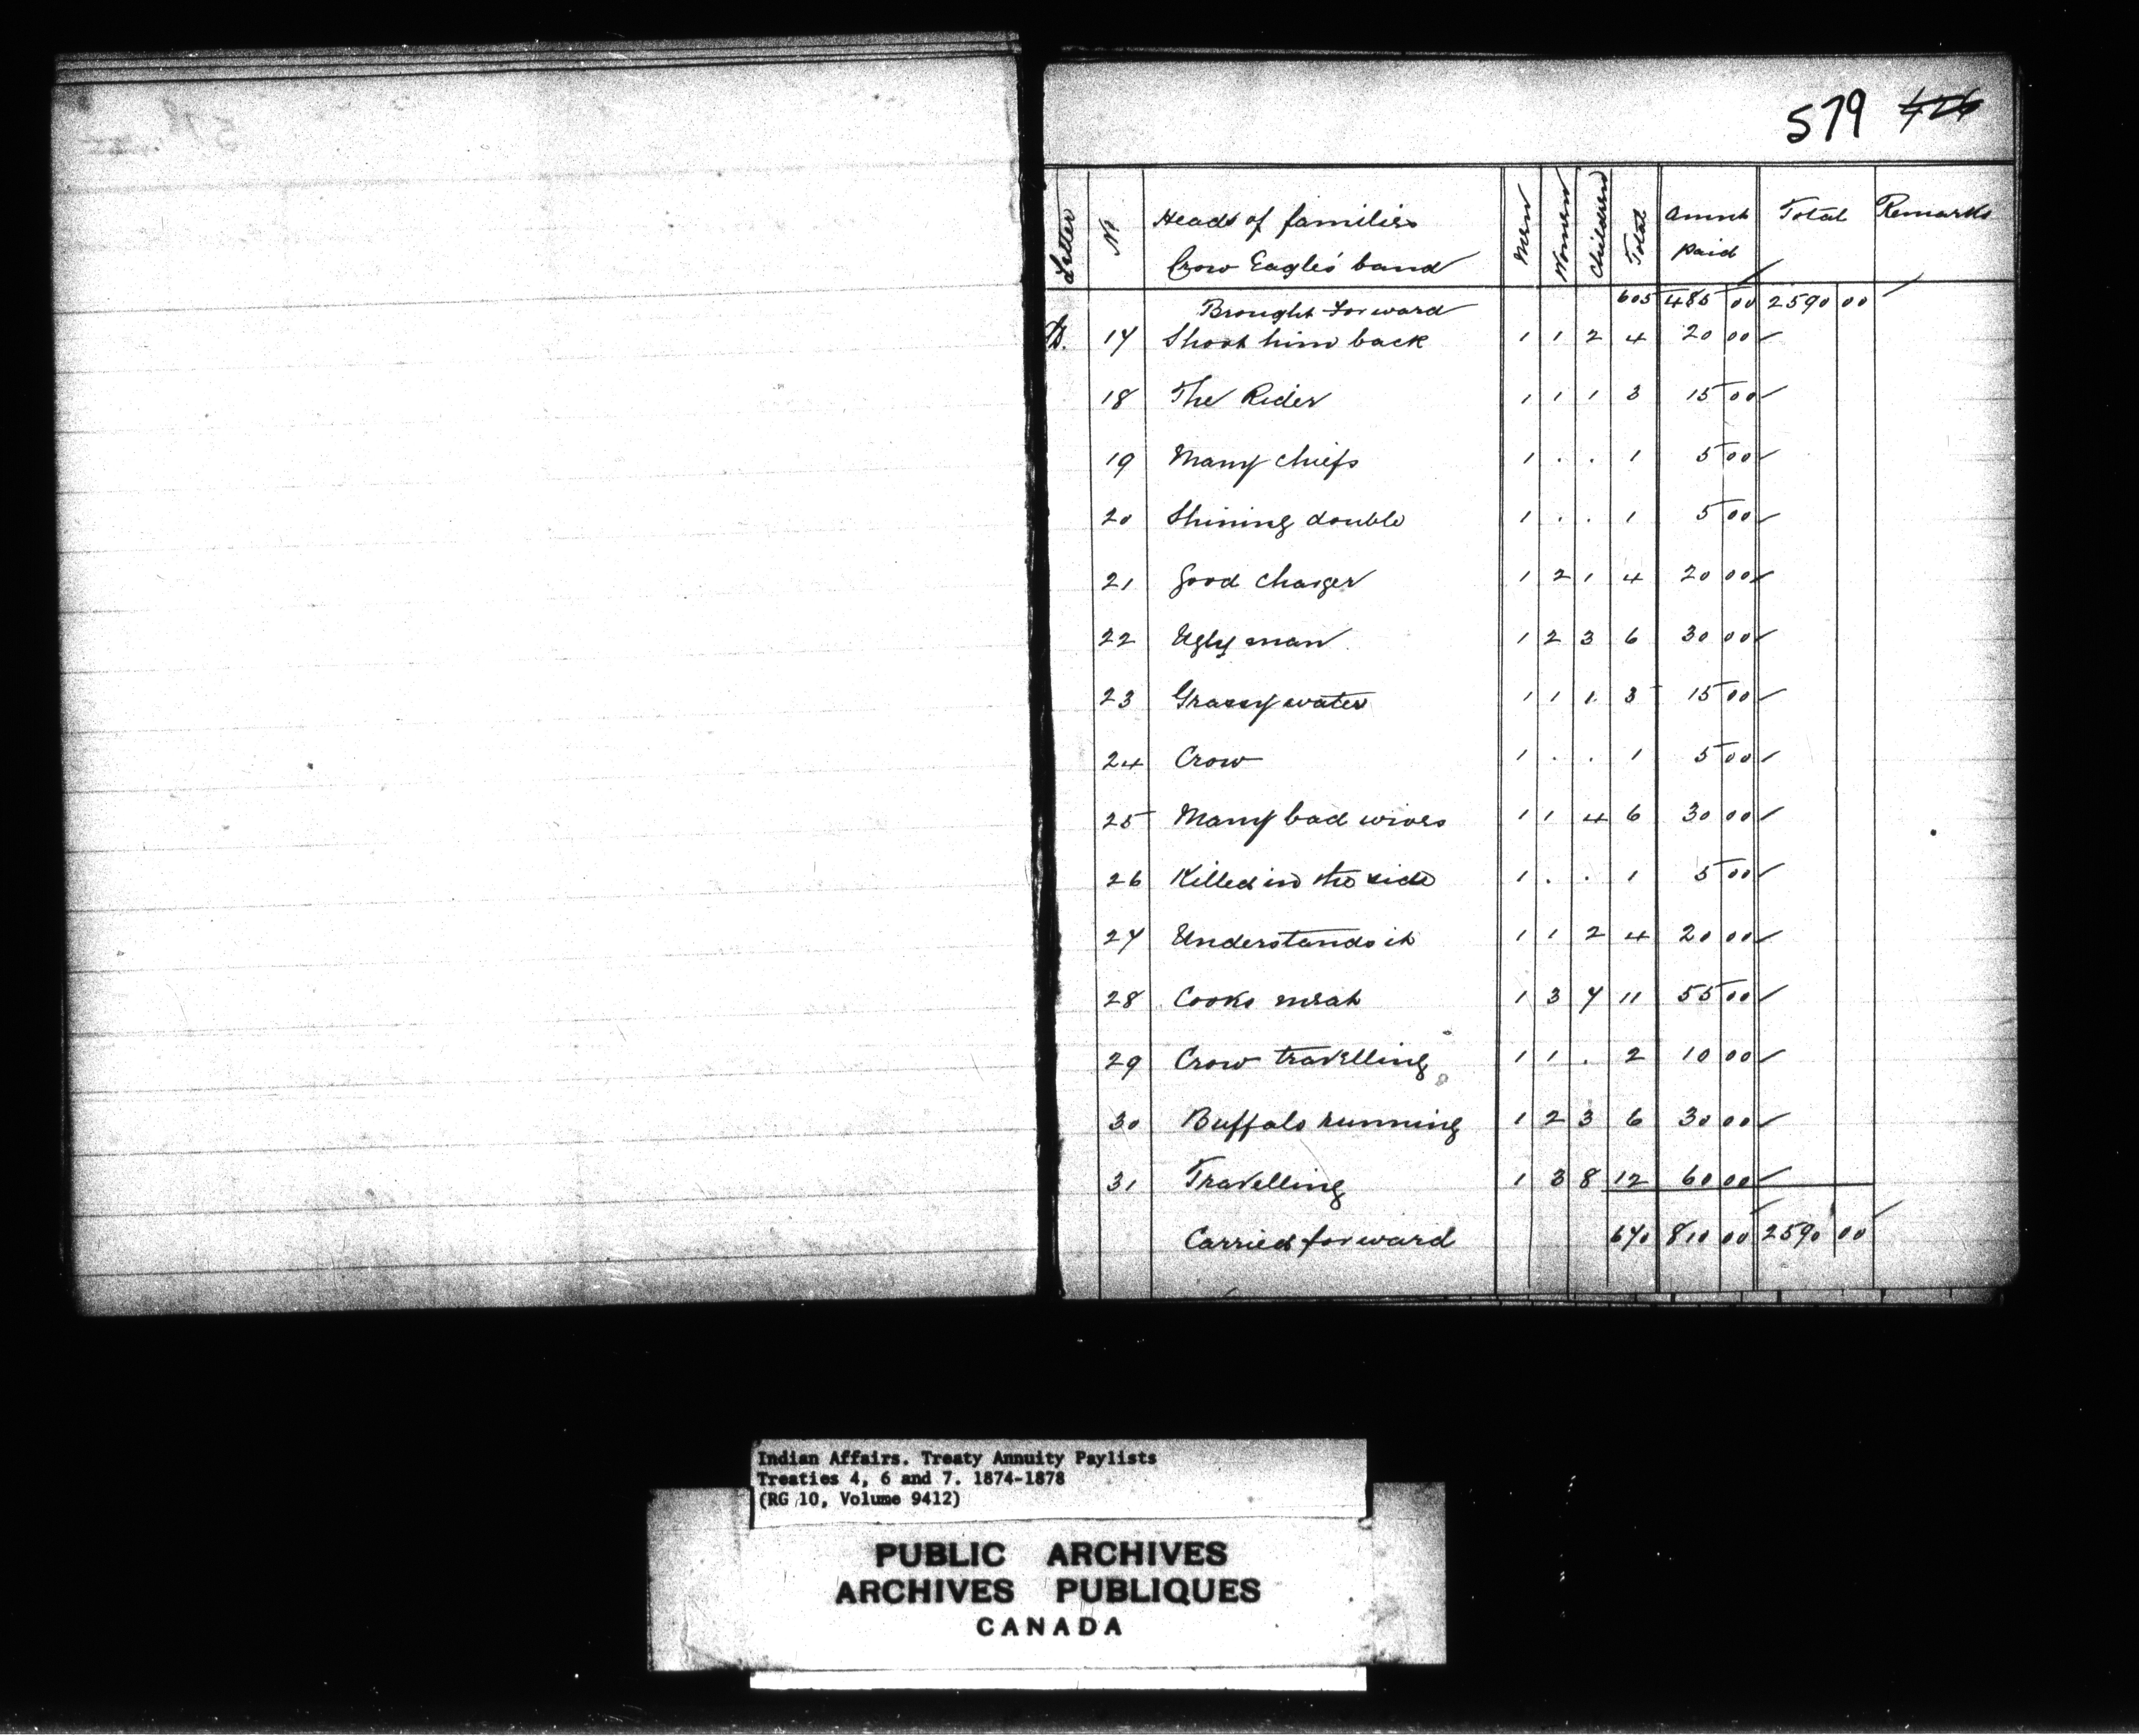 579 426
Letter No Heads of families Men Women Children Total Amnt paid Total Remarks
Crow Eagle's band
Brought Forward 605 485 00 2590 00
17 Shoot him back 1 1 2 4 20 00
18 The Rider 1 1 1 3 15 00
19 Many chiefs 1 . . 1 5 00
20 Shining double 1 . . 1 5 00
21 Good Charger 1 2 1 4 20 00
22 Ugly man 1 2 3 6 30 00
23 Grassy water 1 1 1 3 15 00
24 Crow 1 . . 1 5 00
25 Many bad wives 1 1 4 6 30 00
26 Killed in the side 1 . . 1 5 00
27 Understands it 1 1 2 4 20 00
28 Cooks meat 1 3 7 11 55 00
29 Crow travelling 1 1 . 2 10 00
30 Buffalo running 1 2 3 6 30 00
31 Travelling 1 3 8 12 60 00
Carried forward 670 810 00 2590 00
Indian Affairs. Treaty Annuity Paylists
Treaties 4, 6 and 7. 1874-1878
(RG 10, Volume 9412)
PUBLIC ARCHIVES
ARCHIVES PUBLIQUES
CANADA